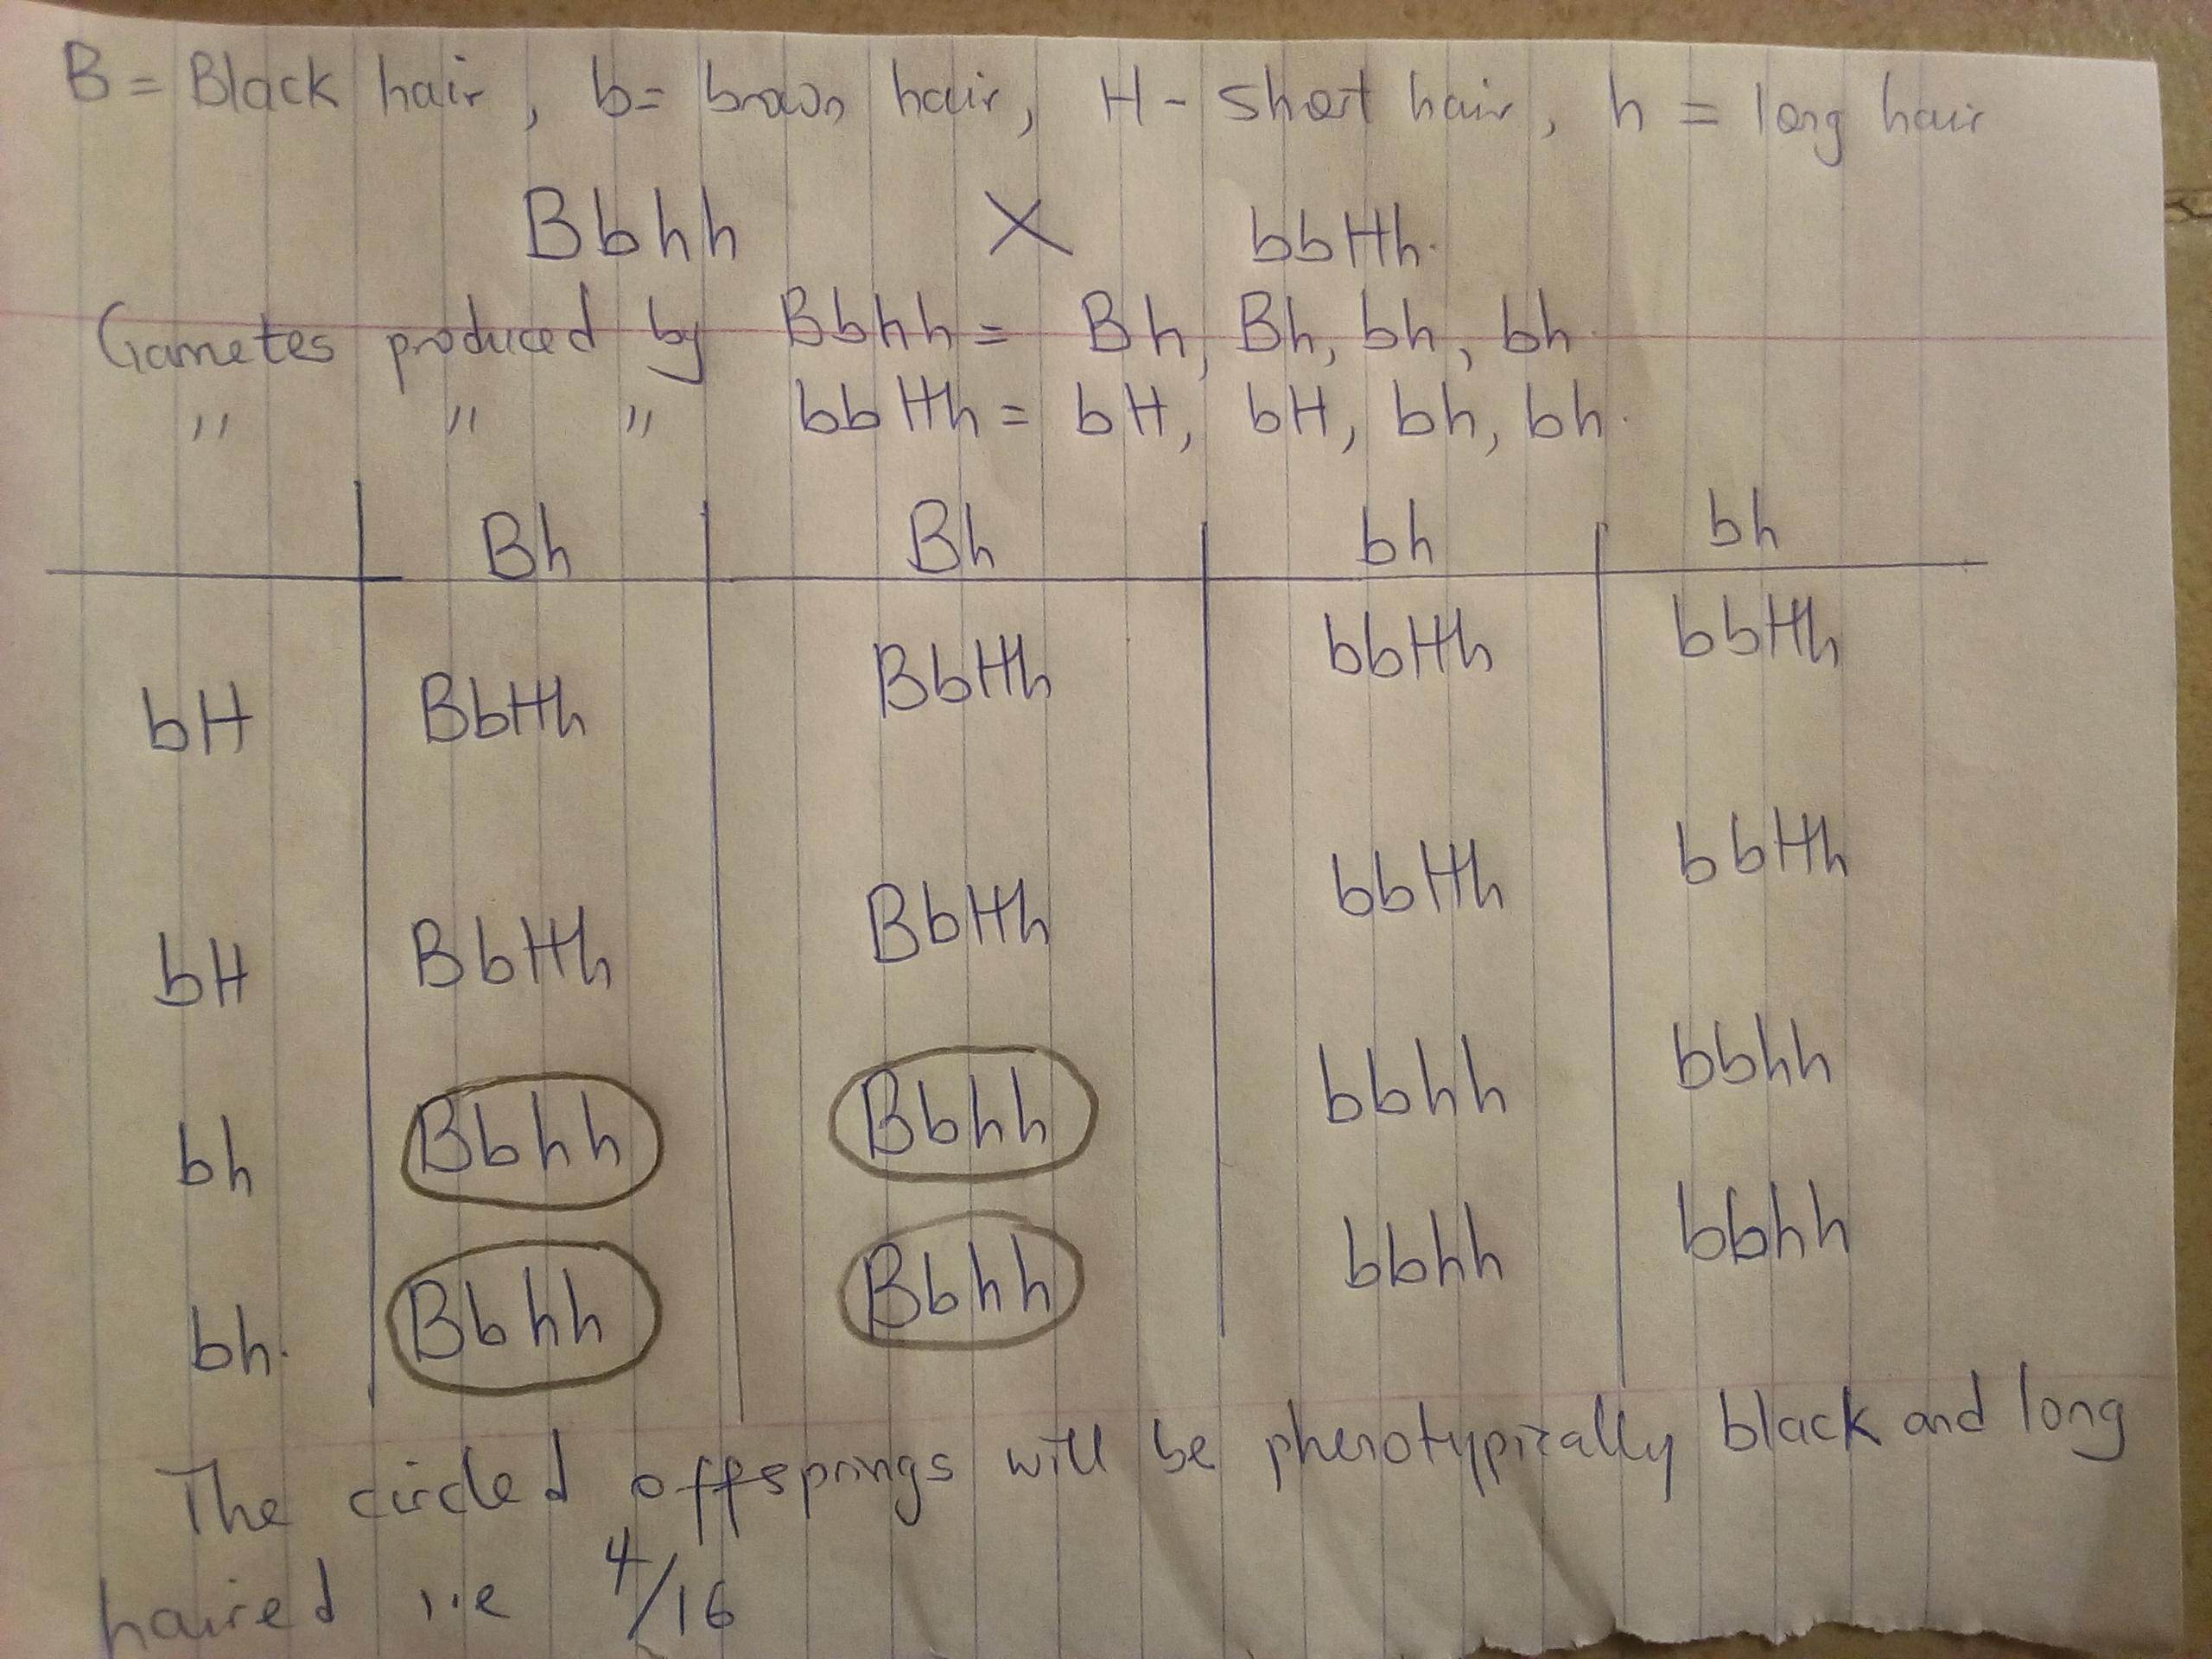 B = Black hair, b= brown hair, H - short hair, h = long hair
Bbhh X bbHh.
Gametes produced by Bbhh = Bh, Bh, bh, bh.
" " " bbHh = bH, bH, bh, bh.
Bh Bh bh bh
bH BbHh BbHh bbHh bbHh
bH BbHh BbHh bbHh bbHh
bh Bbhh Bbhh bbhh bbhh
bh. Bbhh Bbhh bbhh bbhh
The circled offsprings will be phenotypically black and long
haired i.e 4/16